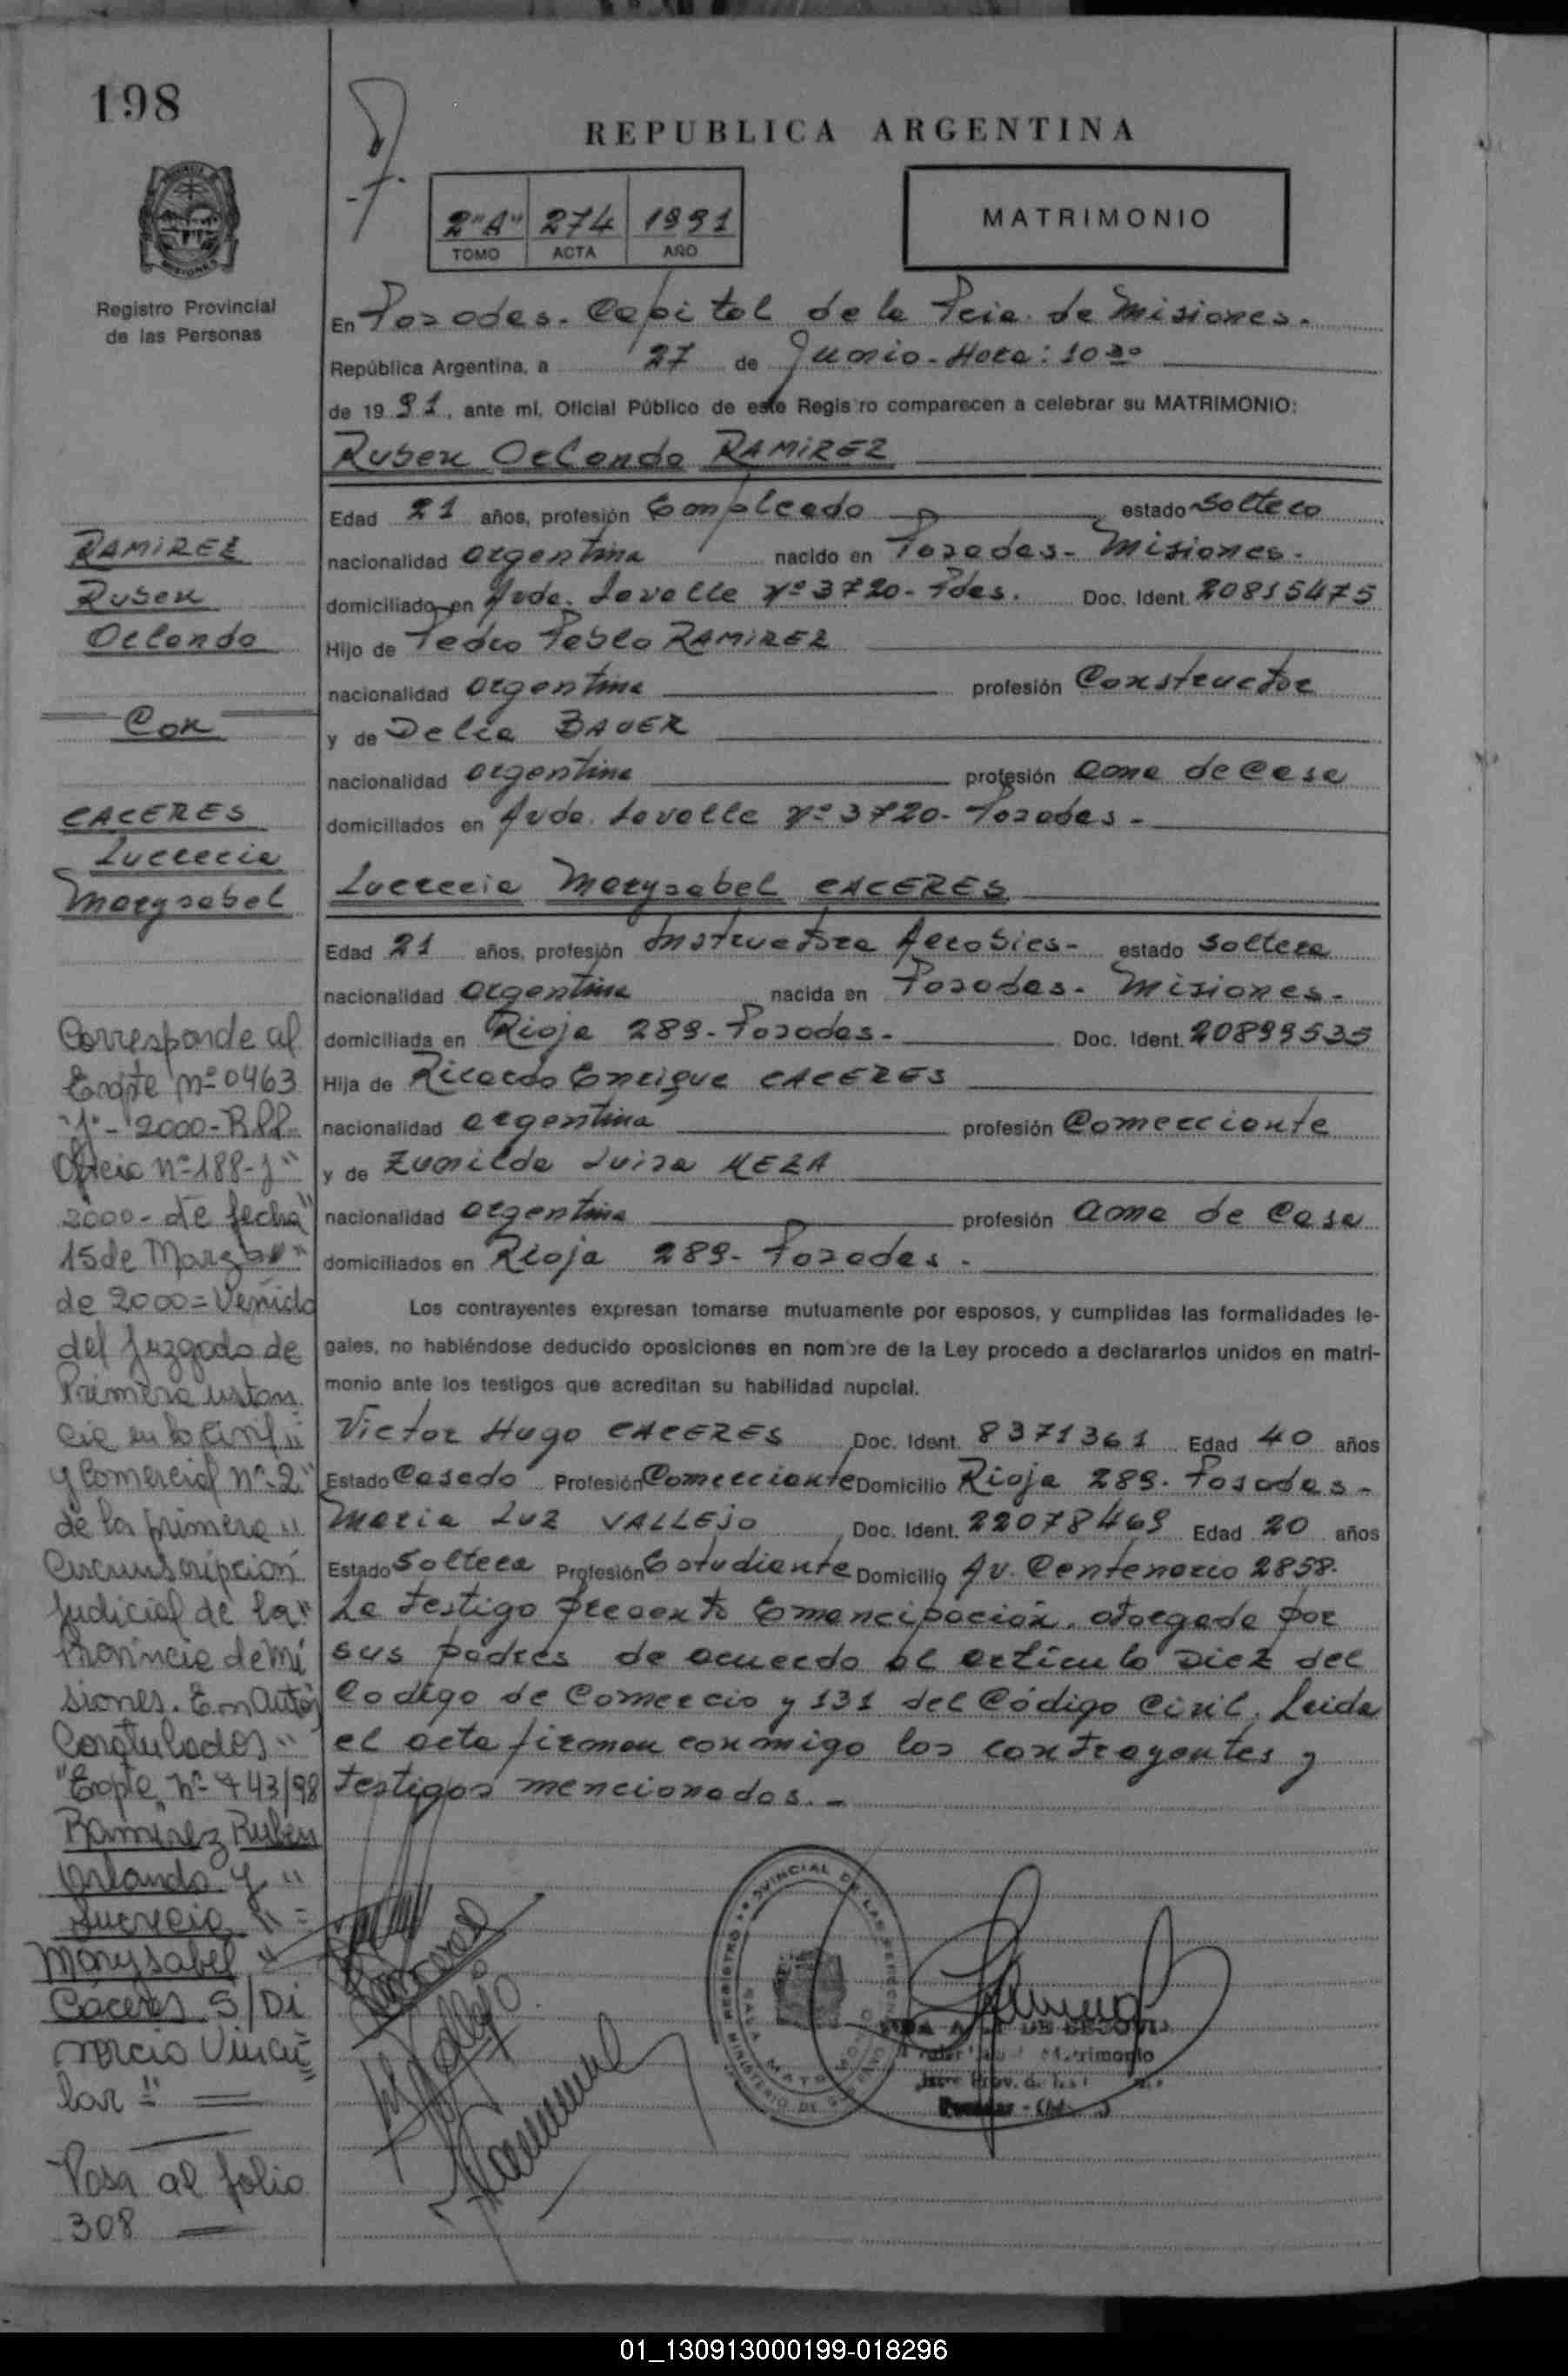 198
REPUBLICA ARGENTINA
2"A" 274 1991
TOMO ACTA AÑO
MATRIMONIO
Registro Provincial
de las Personas
En Posadas. Capital de la Pcia. de Misiones.
República Argentina, a 27 de Junio - Hora: 10 30
de 19 91, ante mí, Oficial Público de este Registro comparecen a celebrar su MATRIMONIO:
Ruben Orlando RAMIREZ
Edad 21 años, profesión Empleado estado Soltero
nacionalidad argentina nacido en Posadas - Misiones.
domiciliado en Avda. Lavalle Nº 3720 - Pdas. Doc. Ident. 20815475
Hijo de Pedro Pablo RAMIREZ
nacionalidad argentina profesión Constructor
y de Delia BAUER
nacionalidad argentina profesión ama de casa
domiciliados en Avda. Lavalle Nº 3720 - Posadas -
Lucrecia Marysabel CACERES
Edad 21 años, profesión Instructora Aerobics - estado soltera
nacionalidad argentina nacida en Posadas - Misiones -
domiciliada en Rioja 289 - Posadas - Doc. Ident. 20899535
Hija de Ricardo Enrique CACERES
nacionalidad argentina profesión Comerciante
y de Zunilda Luisa MEZA
nacionalidad argentina profesión ama de Casa
domiciliados en Rioja 289 - Posadas -
Los contrayentes expresan tomarse mutuamente por esposos, y cumplidas las formalidades le-
gales, no habiéndose deducido oposiciones en nombre de la Ley procedo a declararlos unidos en matri-
monio ante los testigos que acreditan su habilidad nupcial.
Victor Hugo CACERES Doc. Ident. 8371361 Edad 40 años
Estado Casado Profesión Comerciante Domicilio Rioja 289. Posadas -
Maria Luz VALLEJO Doc. Ident. 22078469 Edad 20 años
Estado Soltera Profesión Estudiante Domicilio Av. Centenario 2858.
La testigo presento Emancipación, otorgada por
sus padres de acuerdo al artículo Diez del
Codigo de Comercio y 131 del Código Civil. Leida
el acta firman conmigo los contrayentes y
testigos mencionados. -
RAMIREZ
Ruben
Orlando
Con
CACERES
Lucrecia
Marysabel
Corresponde al
Expte nº 0463
"J" - 2000 - R.P.P.
Oficio Nº 188-J"
2000 - de fecha"
15 de Marzo
de 2000 = Venido
del Juzgado de
Primera instan
cia en lo Civil
y Comercial nº 2"
de la primera "
Circunscripción
Judicial de la "
Provincia de Mi
siones. En autos
Caratulados "
"Expte, Nº 443/98
Ramirez Ruben
Orlando y "
Lucrecia " =
Marysabel "
Caceres S/Di
vorcio Vincu
lar" =
Pasa al folio
308
REGISTRO PROVINCIAL DE LAS PERSONAS
01_130913000199-018296